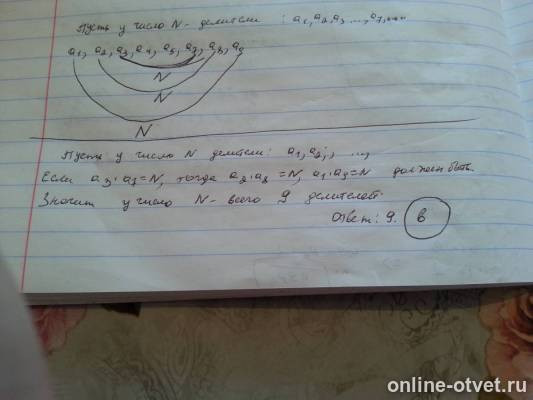 Пусть у число N - делители : a₁, a₂, a₃ ..., a₇, ...
a₁, a₂, a₃, a₄, a₅, a₇, a₈, a₉
N
N
N
Пусть у число N делители: a₁, a₂, , ...,
Если a₃·a₇=N, тогда a₂·a₈=N, a₁·a₉=N должен быть.
Значит у число N - всего 9 делителей
Ответ: 9. в
online-otvet.ru